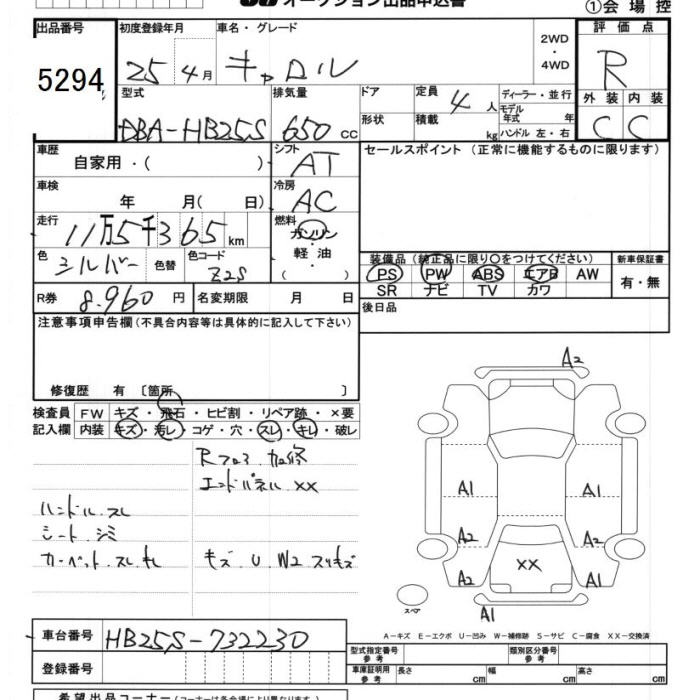 オークション出品申込書
①会場控
出品番号 初度登録年月 車名・グレード 2WD・4WD 評価点
5294 25 4月 キャロル R
型式 排気量 ドア 定員 4人 ディーラー・並行 外装 内装
形状 積載 kg モデル年式 年 ハンドル 左・右
DBA-HB25S 650 CC C C
車歴 自家用・( ) シフト AT セールスポイント(正常に機能するものに限ります)
車検 年 月( 日) 冷房 AC
走行 11万5千365km 燃料 ガソリン・軽油・( )
色 シルバー 色替 色コード Z2S
装備品(純正品に限り○をつけてください) 新車保証書
PS PW ABS エアB AW 有・無
SR ナビ TV カワ
R券 8,960円 名変期限 月 日 後日品
注意事項申告欄(不具合内容等は具体的に記入して下さい)
修復歴 有 〔箇所 〕
検査員 FW キズ・飛石・ヒビ割・リペア跡・×要
記入欄 内装 キズ・汚レ・コゲ・穴・スレ・キレ・破レ
Rフロア 加修
エンドパネル XX
ハンドル スレ
シート シミ
カーペット スレ キレ キズ U W2 スリキズ
A2
A1 A1
A2 A2
XX
A2 A1
スペア A1
A-キズ E-エクボ U-凹み W-補修跡 S-サビ C-腐食 XX-交換済
車台番号 HB25S-732230
登録番号
型式指定番号 参考 類別区分番号 参考
車庫証明用 参考 長さ cm 幅 cm 高さ cm
希望出品コーナー(コーナーは各会場により異なります)